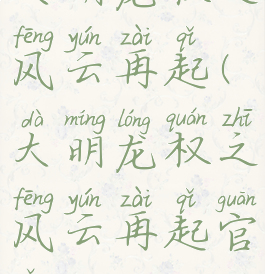 fēng yún zài qǐ
风云再起(
dà míng lóng quán zhī
大明龙权之
fēng yún zài qǐ guān
风云再起官